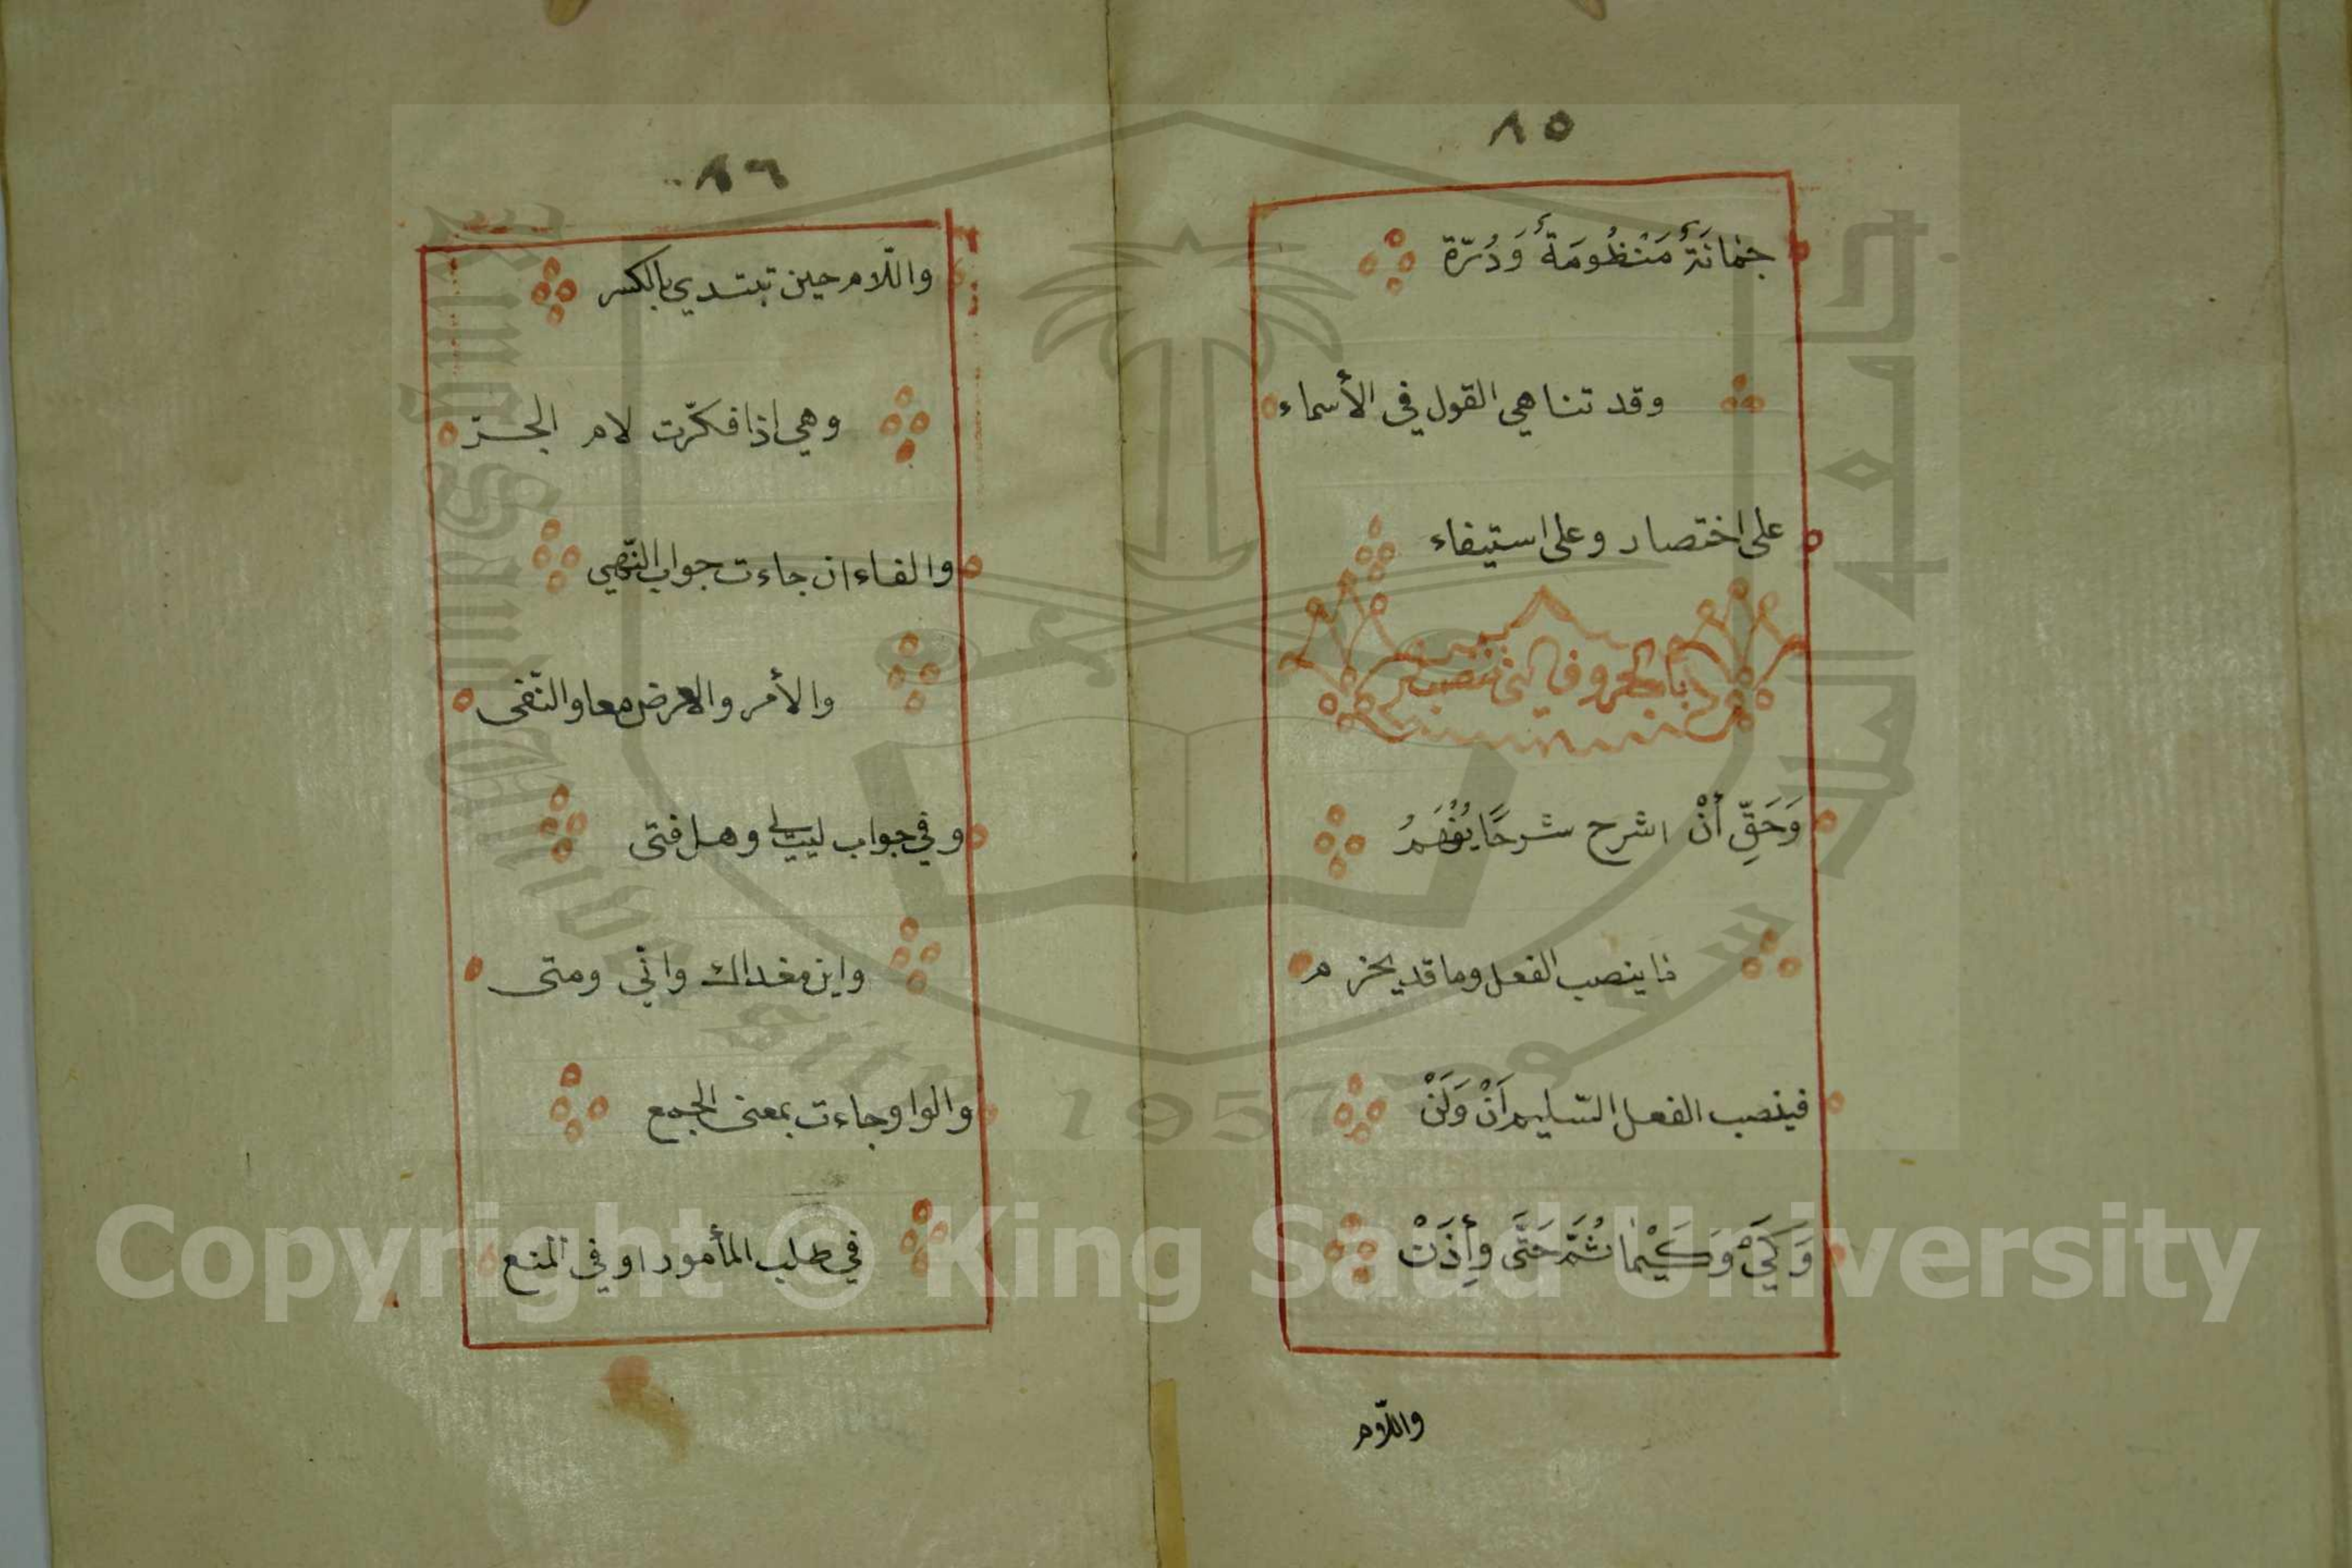 ٨٥
جُمَانَةٌ مَنْظُومَةٌ وَدُرّة
وقد تناهى القول في الأسماء
على اختصار وعلى استيفاء
باب الحروف التي تنصب
وَحَقّ أَنْ اشرح شرحًا يُفْهَمُ
ما ينصب الفعل وما قد يجزم
فينصب الفعل السّليم أَنْ وَلَنْ
وَكَيْ وَكَيْمَا ثُمَّ حَتَّى وَإِذَنْ
واللّام
٨٦
واللّام حين تبتدي بالكسر
وهي اذا فكّرت لام الجرّ
والفاء ان جاءت جواب النّهي
والأمر والعرض معا والنّفى
وفي جواب ليت لي وهل فتى
واين مغداك وانّي ومتى
والواو جاءت بمعنى الجمع
في طلب المأمور او في المنع
Copyright © King Saud University
جامعة الملك سعود
King Saud University
1957